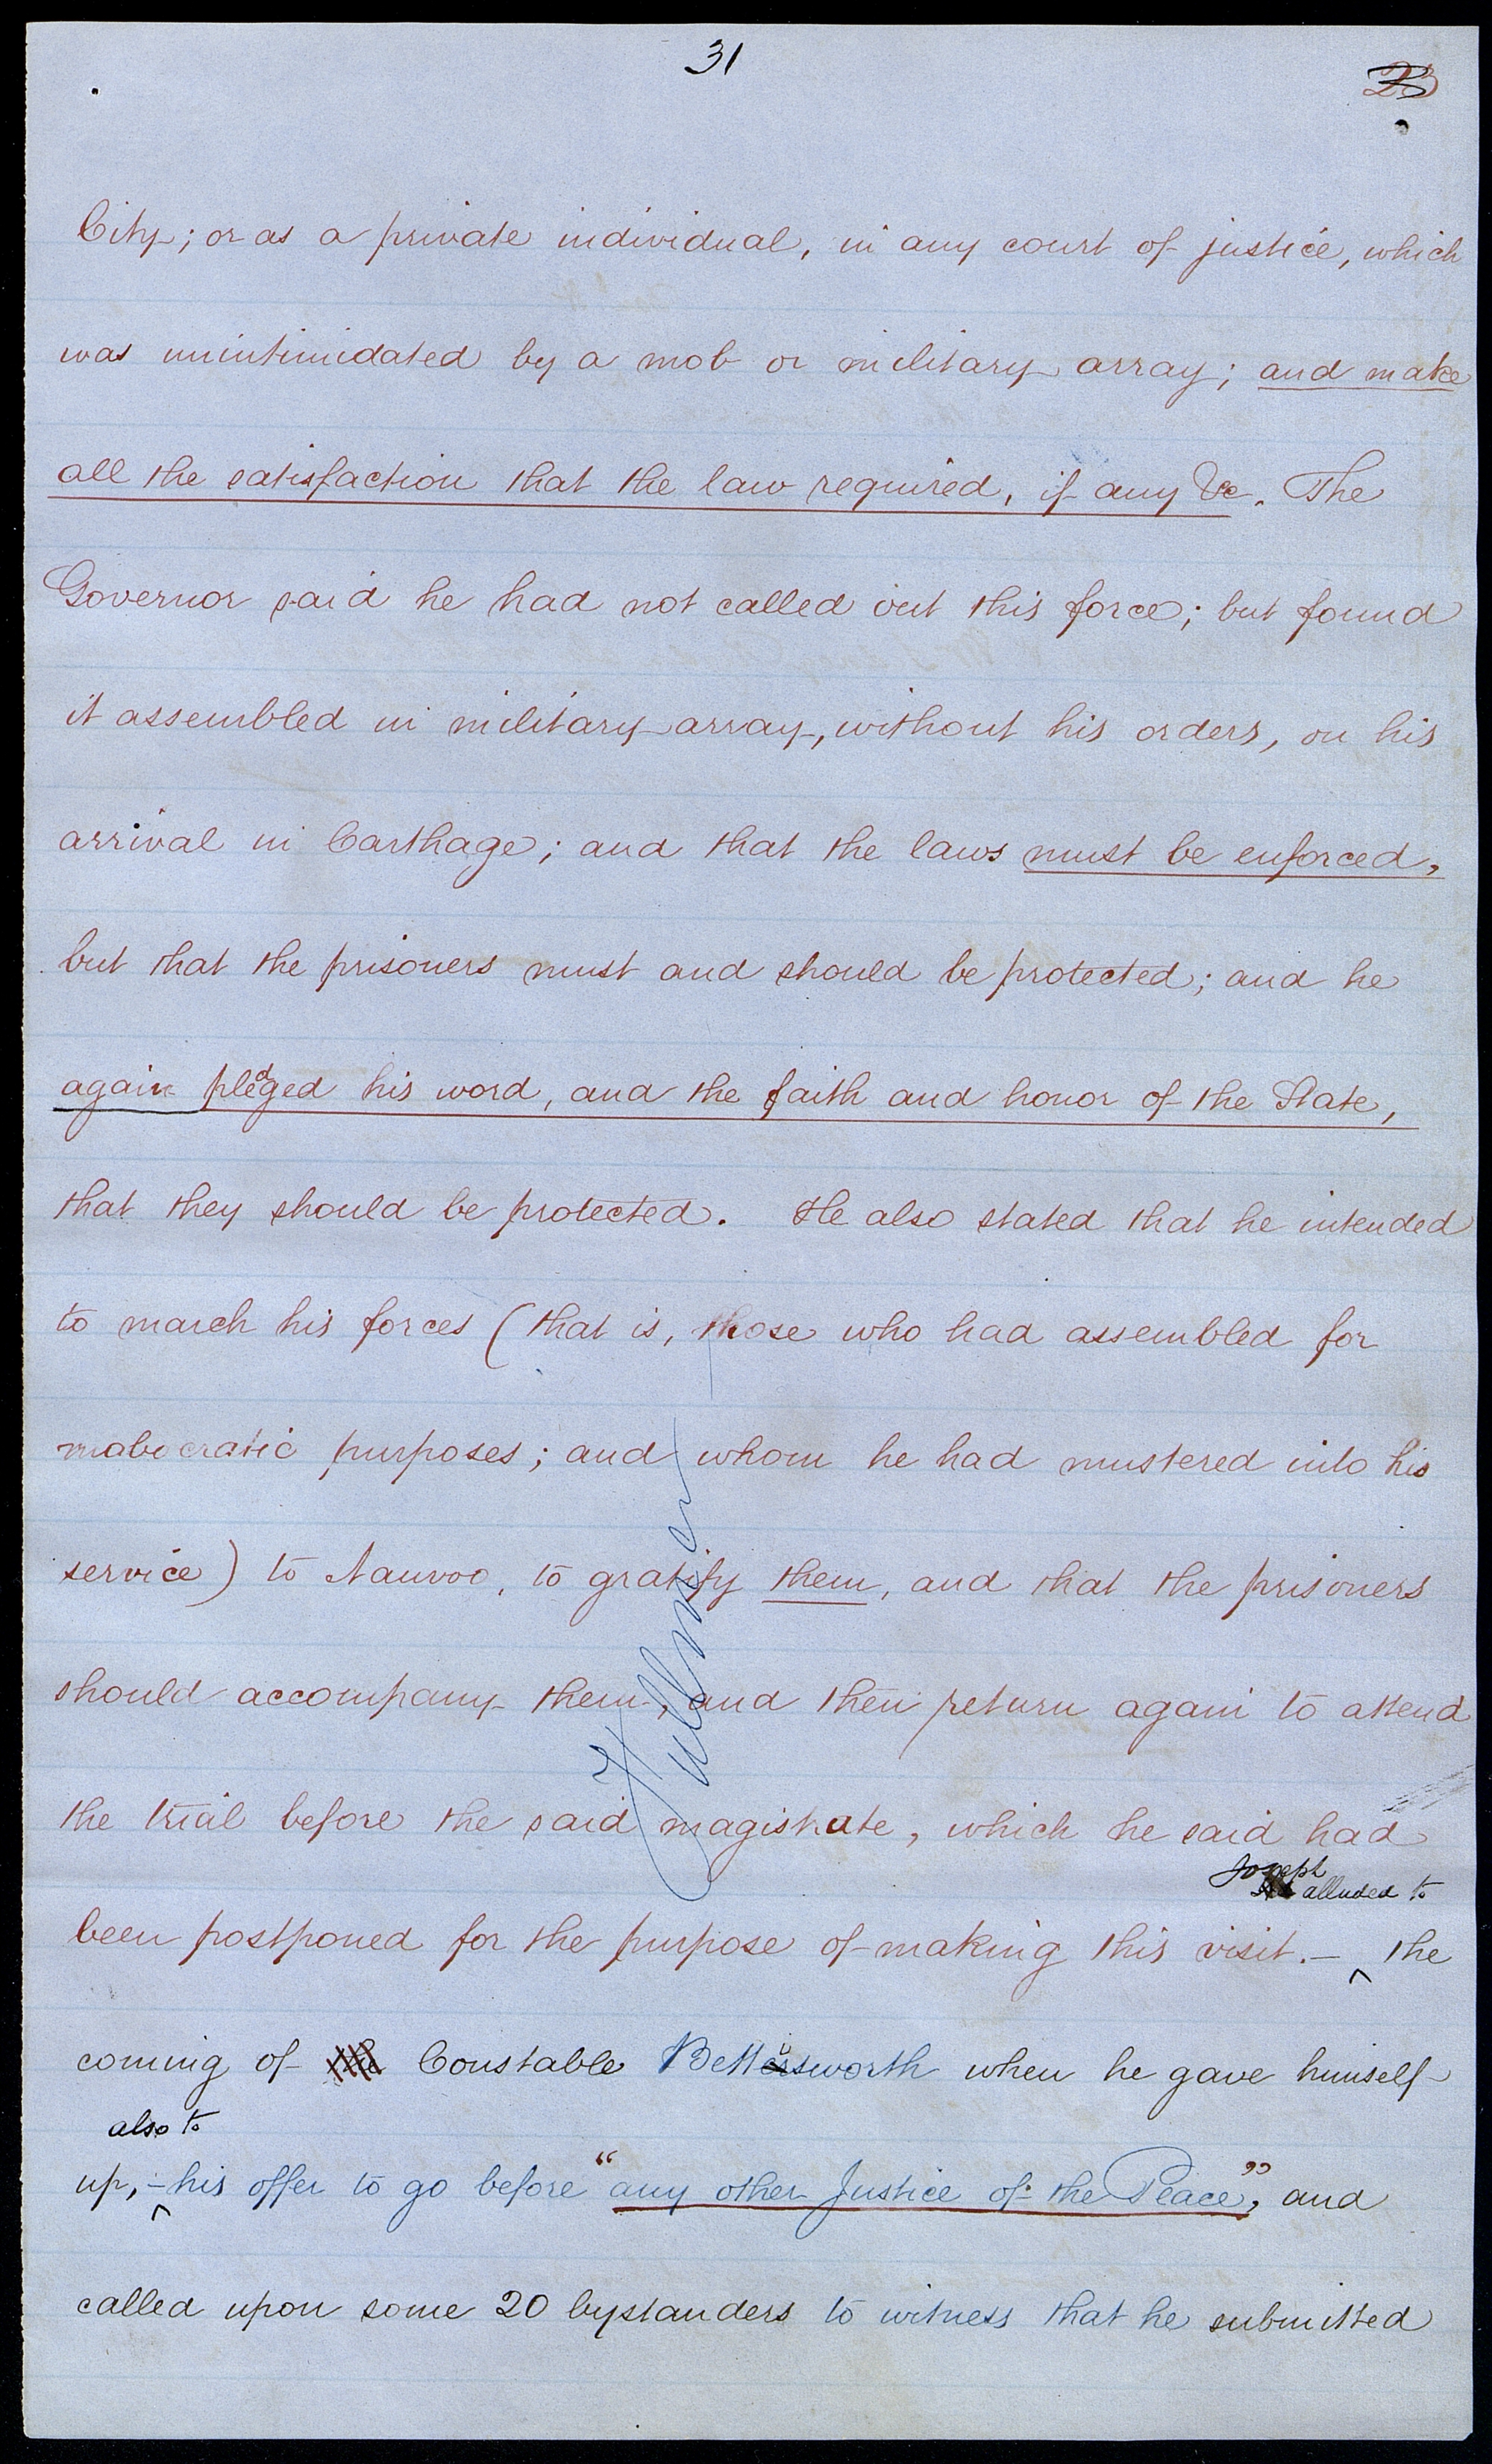 31
23
City; or as a private individual, in any court of justice, which
was unintimidated by a mob or military array; and make
all the satisfaction that the law required, if any &c. The
Governor said he had not called out this force; but found
it assembled in military array, without his orders, on his
arrival in Carthage; and that the laws must be enforced,
but that the prisoners must and should be protected; and he
again pledged his word, and the faith and honor of the State,
that they should be protected. He also stated that he intended
to march his forces (that is, those who had assembled for
mobocratic purposes; and whom he had mustered into his
service) to Nauvoo, to gratify them, and that the prisoners
should accompany them, and then return again to attend
the trial before the said magistrate, which he said had
Joseph
alluded to
been postponed for the purpose of making this visit.— ^ the
coming of the Constable Bettisworth when he gave himself
also to
up,— ^ his offer to go before "any other Justice of the Peace", and
called upon some 20 bystanders to witness that he submitted
Fullmer